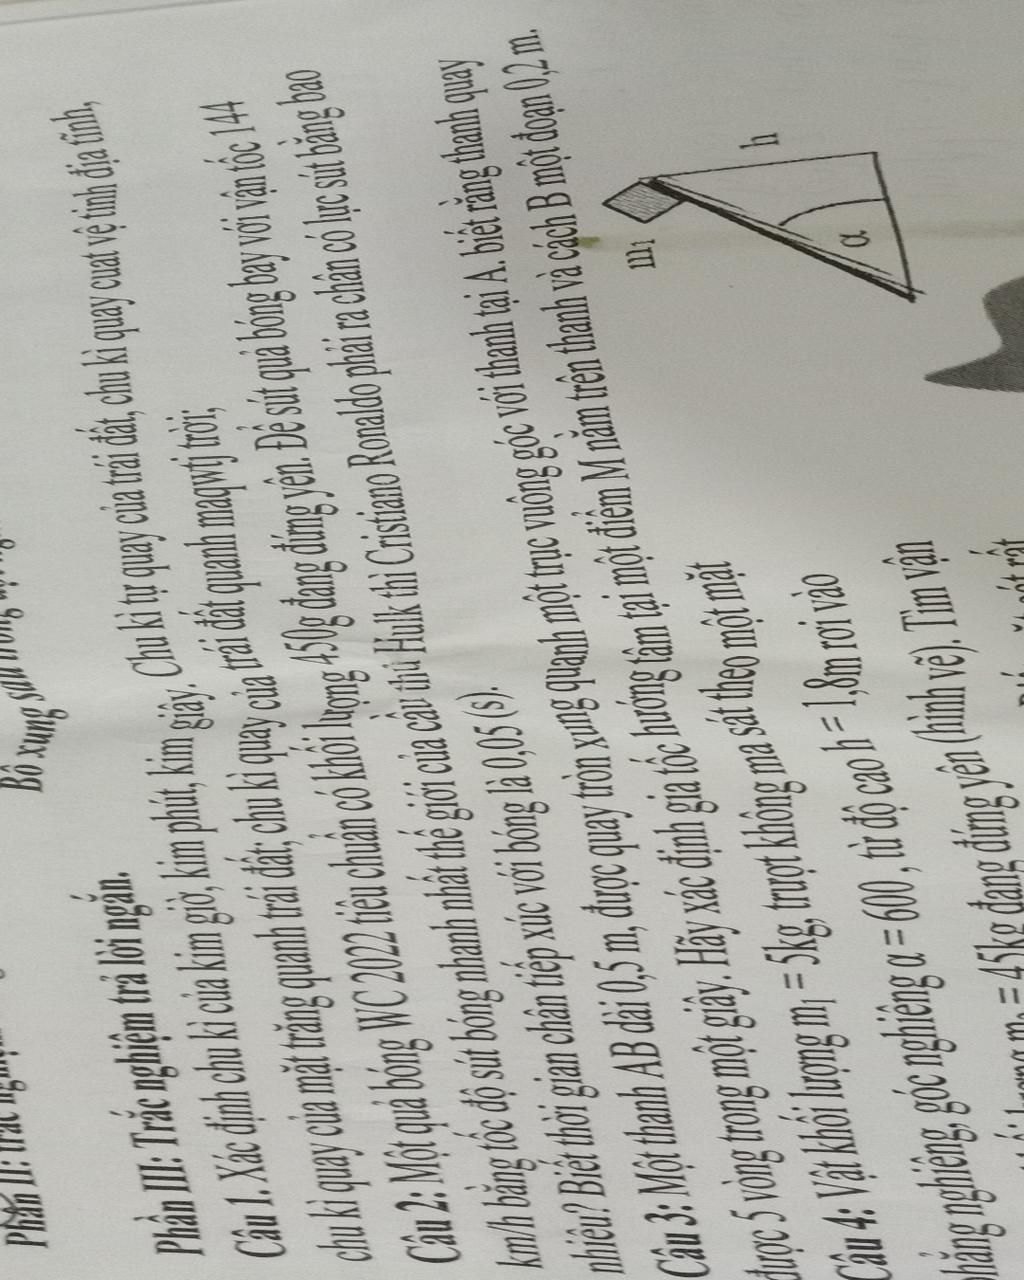 Phần II: trắc nghiệm
Bổ xung sau
Phần III: Trắc nghiệm trả lời ngắn.
Câu 1. Xác định chu kì của kim giờ, kim phút, kim giây. Chu kì tự quay của trái đất, chu kì quay cuat vệ tinh địa tĩnh,
chu kì quay của mặt trăng quanh trái đất; chu kì quay của trái đất quanh maqwtj trời;
Câu 2: Một quả bóng WC 2022 tiêu chuẩn có khối lượng 450g đang đứng yên. Để sút quả bóng bay với vận tốc 144
km/h bằng tốc độ sút bóng nhanh nhất thế giới của cầu thủ Hulk thì Cristiano Ronaldo phải ra chân có lực sút bằng bao
nhiêu? Biết thời gian chân tiếp xúc với bóng là 0,05 (s).
Câu 3: Một thanh AB dài 0,5 m, được quay tròn xung quanh một trục vuông góc với thanh tại A. biết rằng thanh quay
được 5 vòng trong một giây. Hãy xác định gia tốc hướng tâm tại một điểm M nằm trên thanh và cách B một đoạn 0,2 m.
Câu 4: Vật khối lượng m1 = 5kg, trượt không ma sát theo một mặt
phẳng nghiêng, góc nghiêng α = 600 , từ độ cao h = 1,8m rơi vào
khối lượng m2 = 45kg đang đứng yên (hình vẽ). Tìm vận
m1
h
α